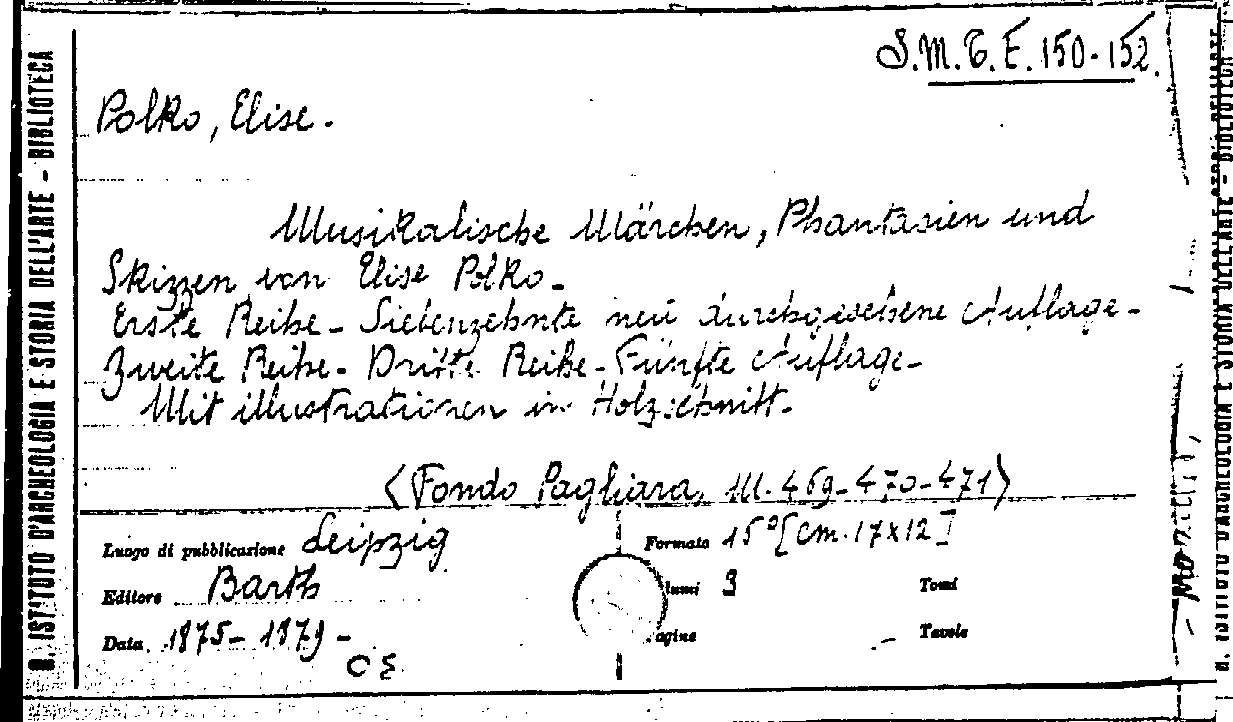 S.M.C.E.150-152.
Polko, Elise.
Musikalische Märchen, Phantasien und
Skizzen von Elise Polko.
Erste Reihe - Siebenzehnte neu durchgesehene Auflage -
Zweite Reihe - Dritte Reihe - Fünfte Auflage -
Mit illustrationen in Holzschnitt.
(Fondo Pagliara, III. 469-470-471)
Luogo di pubblicazione Leipzig
Editore Barth
Data 1875-1879-
Formato 15°[cm. 17x12]
lumi 3 Tomi
agine - Tavole
R. ISTITUTO D'ARCHEOLOGIA E STORIA DELL'ARTE - BIBLIOTECA
R. ISTITUTO D'ARCHEOLOGIA E STORIA DELL'ARTE - BIBLIOTECA